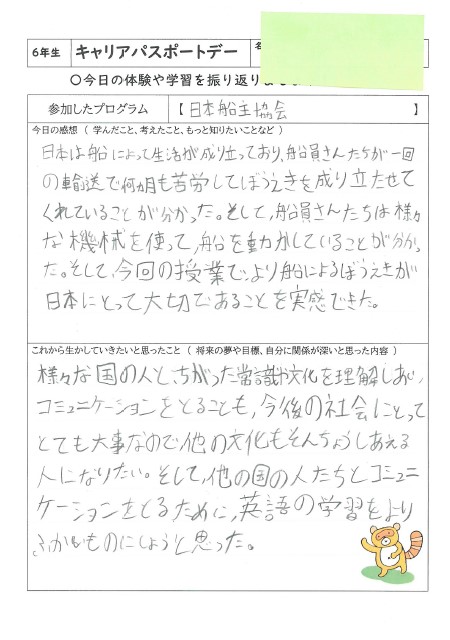 6年生 キャリアパスポートデー
○今日の体験や学習を振り返り
参加したプログラム 【日本船主協会 】
今日の感想（ 学んだこと、考えたこと、もっと知りたいことなど ）
日本は船によって生活が成り立っており、船員さんたちが一回
の輸送で何カ月も苦労してぼうえきを成り立たせて
くれていることが分かった。そして、船員さんたちは様々
な機械を使って、船を動かしていることが分かっ
た。そして、今回の授業で、より船によるぼうえきが
日本にとって大切であることを実感できた。
これから生かしていきたいと思ったこと（ 将来の夢や目標、自分に関係が深いと思った内容 ）
様々な国の人と、ちがった常識や文化を理解しあい、
コミュニケーションをとることも、今後の社会にとって
とても大事なので、他の文化もそんちょうしあえる
人になりたい。そして、他の国の人たちとコミュニ
ケーションをとるために、英語の学習をより
ふかいものにしようと思った。